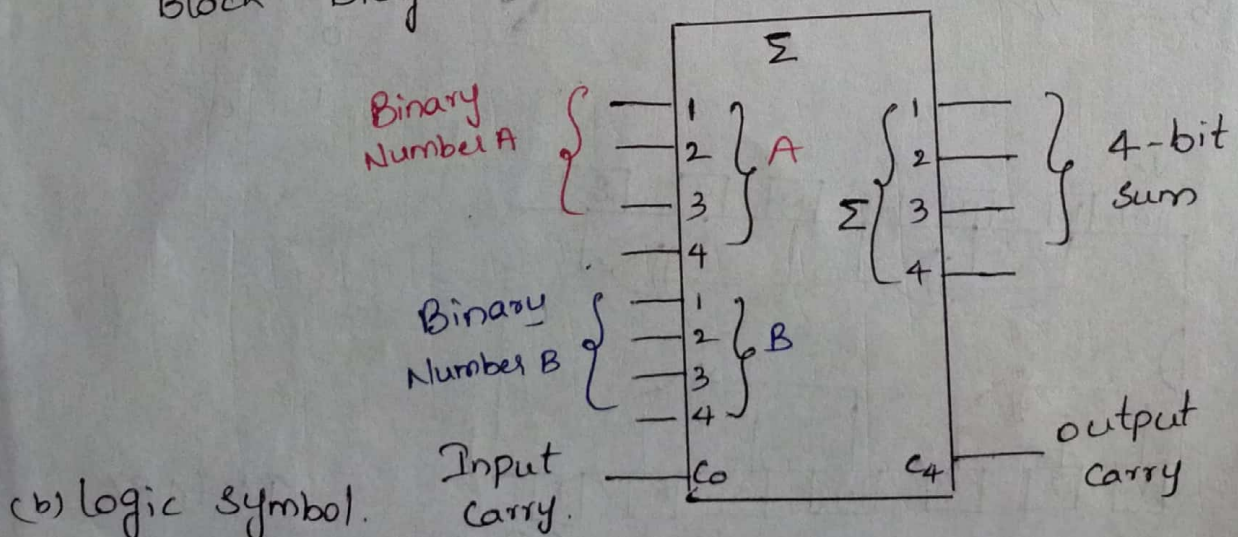 Block
Σ
Binary
Number A
1
2
3
4
A
Σ
1
2
3
4
4-bit
Sum
Binary
Number B
1
2
3
4
B
Input
Carry.
C0
C4
output
Carry
(b) logic symbol.